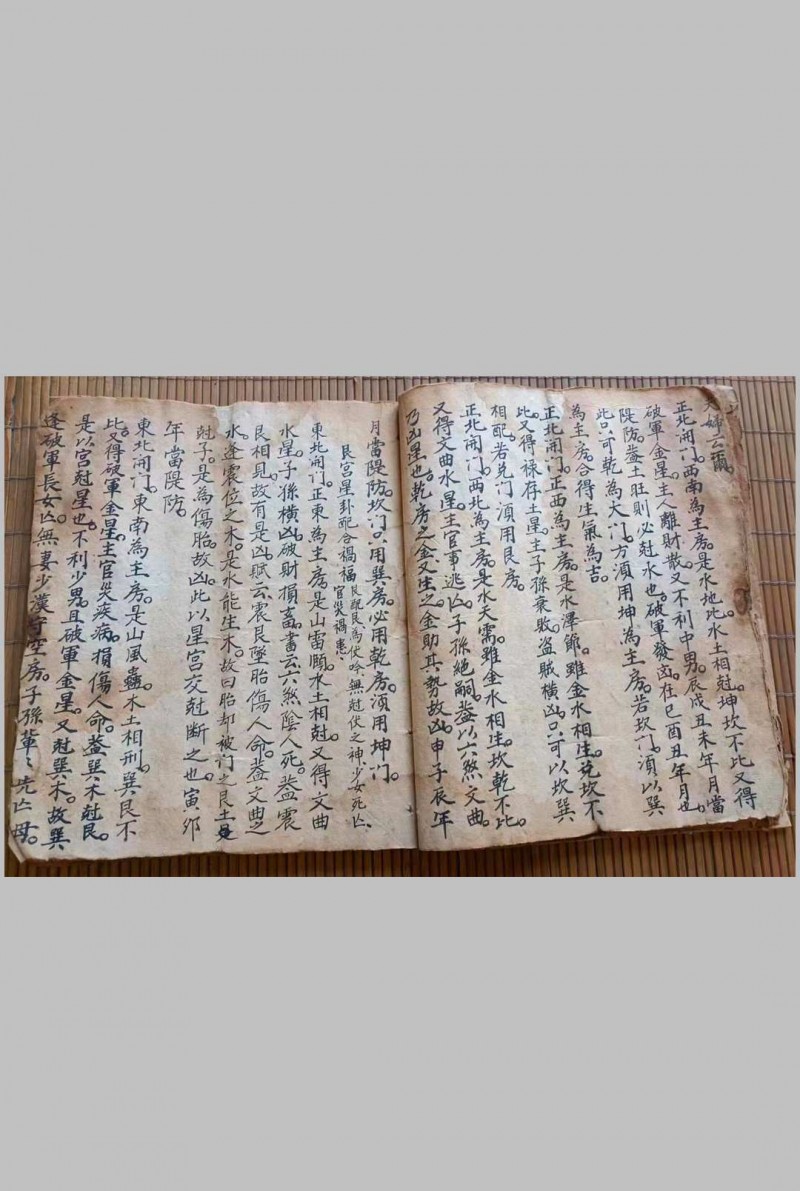 夫婦云爾。
正北開门。西南為主房。是水地比水土相尅。坤坎不比。又得
破軍金星。主人離財散。又不利中男。辰戌丑未年月當
隄防。蓋土旺則必尅水也。破軍發凶。在巳酉丑年月也。
此只可乾為大门。方湏用坤為主房。若坎门。湏以巽
為主房。合得生氣為吉。
正北開门。正西為主房。是水澤節。雖金水相生。兌坎不
比。又得禄存土星。主子孫衰敗。盗賊横凶。只可以坎巽
相配。若兌门湏用艮房。
正北開门。西北為主房。是水天需。雖金水相生。坎乾不比。
又得文曲水星。主官事逃凶。子孫絶嗣。蓋以六煞文曲。
乃凶星也。乾房之金又生之。金助其勢故凶。申子辰年
月當隄防。坎门只用巽房。必用乾房。湏用坤门。
艮宮星卦配合禍福 艮配艮為伏吟無尅伏之神。少女死亡、官災禍患、
東北開门。正東為主房。是山雷頤。水土相尅。又得文曲
水星。子孫横凶。破財損畜。書云六煞陰人死。蓋震
艮相見。故有是凶。賦云震艮墜胎傷人命。蓋文曲之
水。逢震位之木。是水能生木。故曰胎却被门之艮土是
尅子。是為傷胎。故凶。此以星宮交尅断之也。寅卯
年當隄防。
東北開门。東南為主房。是山風蠱。木土相刑。巽艮不
比。又得破軍金星。主官災疾病。損傷人命。蓋巽木尅艮。
是以宮尅星也。不利少男。且破軍金星。又尅巽木。故巽
逢破軍長女亡。無妻少漢守空房。子孫輩〻先亡母。